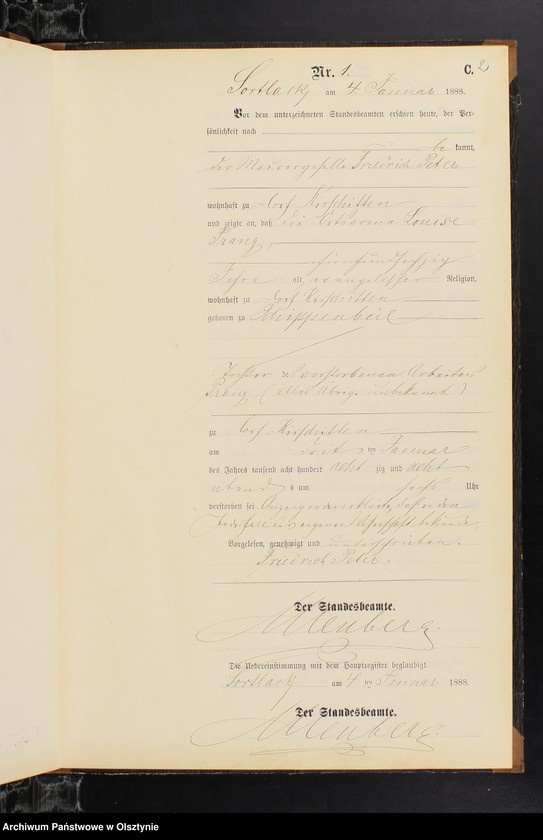 Nr. 1. C. 2
Sortlack am 4. Januar 1888.
Vor dem unterzeichneten Standesbeamten erschien heute, der Per-
sönlichkeit nach
be kannt,
der Maurergeselle Friedrich Peter
wohnhaft zu Dorf
und zeigte an, daß die Ortsarme Louise
Prang,
fünfundsechzig
Jahre alt, evangelischer Religion,
wohnhaft zu Dorf
geboren zu Schippenbeil
Tochter des verstorbenen Arbeiters
Prang (alles Übrige unbekannt)
zu Dorf
am dritten Januar
des Jahres tausend acht hundert acht zig und acht
abends um sechs Uhr
verstorben sei. Anzeigender erklärte, daß er den
Todesfall aus eigener Wissenschaft bekunde.
Vorgelesen, genehmigt und unterschrieben.
Friedrich Peter.
Der Standesbeamte.
Die Uebereinstimmung mit dem Hauptregister beglaubigt.
Sortlack am 4 ten Januar 1888.
Der Standesbeamte.
Archiwum Państwowe w Olsztynie